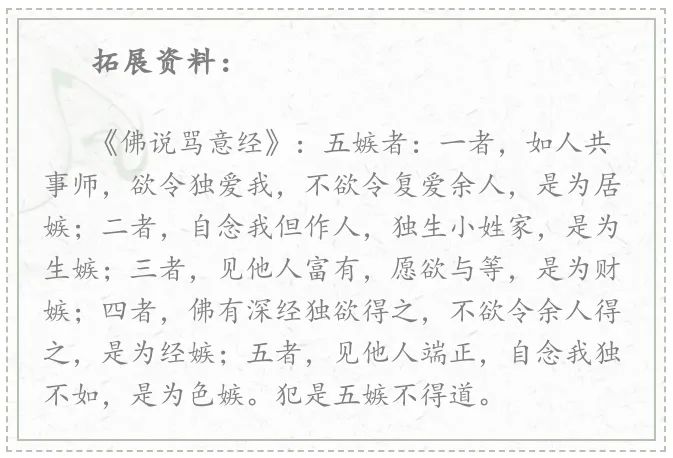 拓展资料：
《佛说骂意经》：五嫉者：一者，如人共
事师，欲令独爱我，不欲令复爱余人，是为居
嫉；二者，自念我但作人，独生小姓家，是为
生嫉；三者，见他人富有，愿欲与等，是为财
嫉；四者，佛有深经独欲得之，不欲令余人得
之，是为经嫉；五者，见他人端正，自念我独
不如，是为色嫉。犯是五嫉不得道。